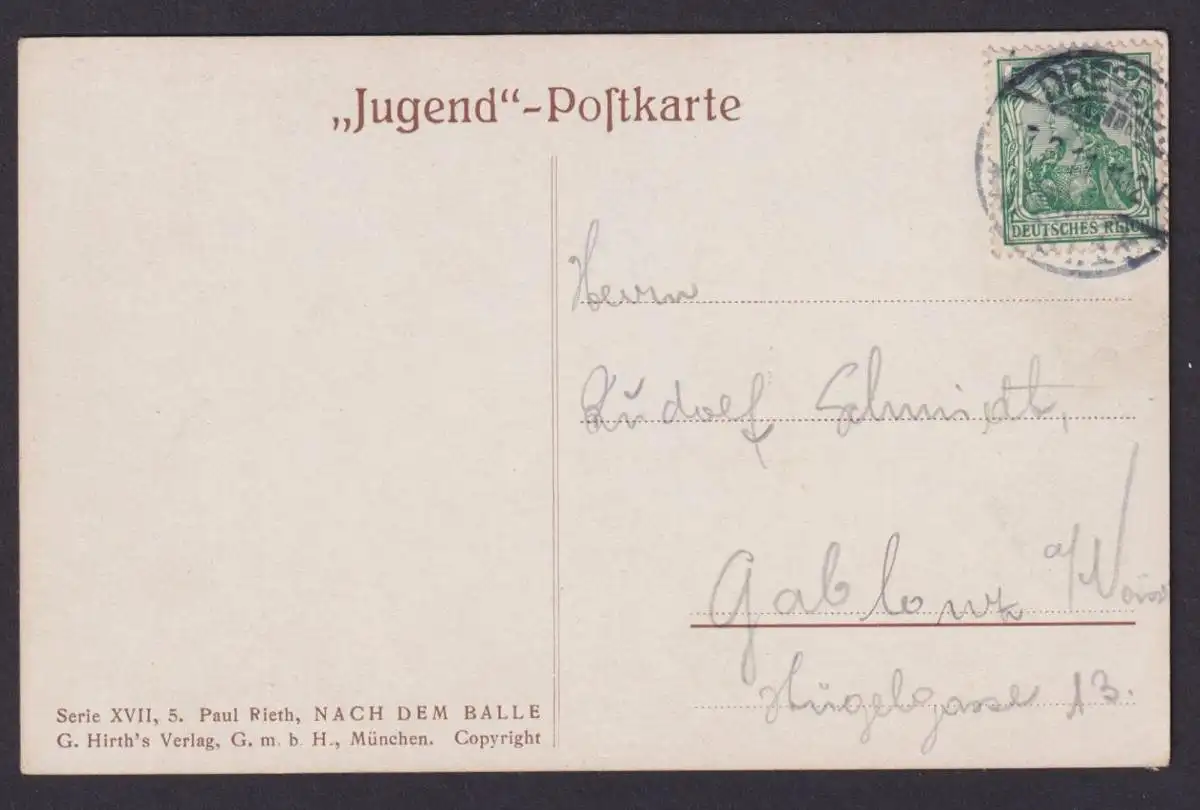 „Jugend“-Poſtkarte
DRES
DEUTSCHES REICH
Herrn
Rudolf Schmidt,
Gablonz a/
Hügelgasse 13.
Serie XVII, 5. Paul Rieth, NACH DEM BALLE
G. Hirth's Verlag, G. m. b H., München. Copyright